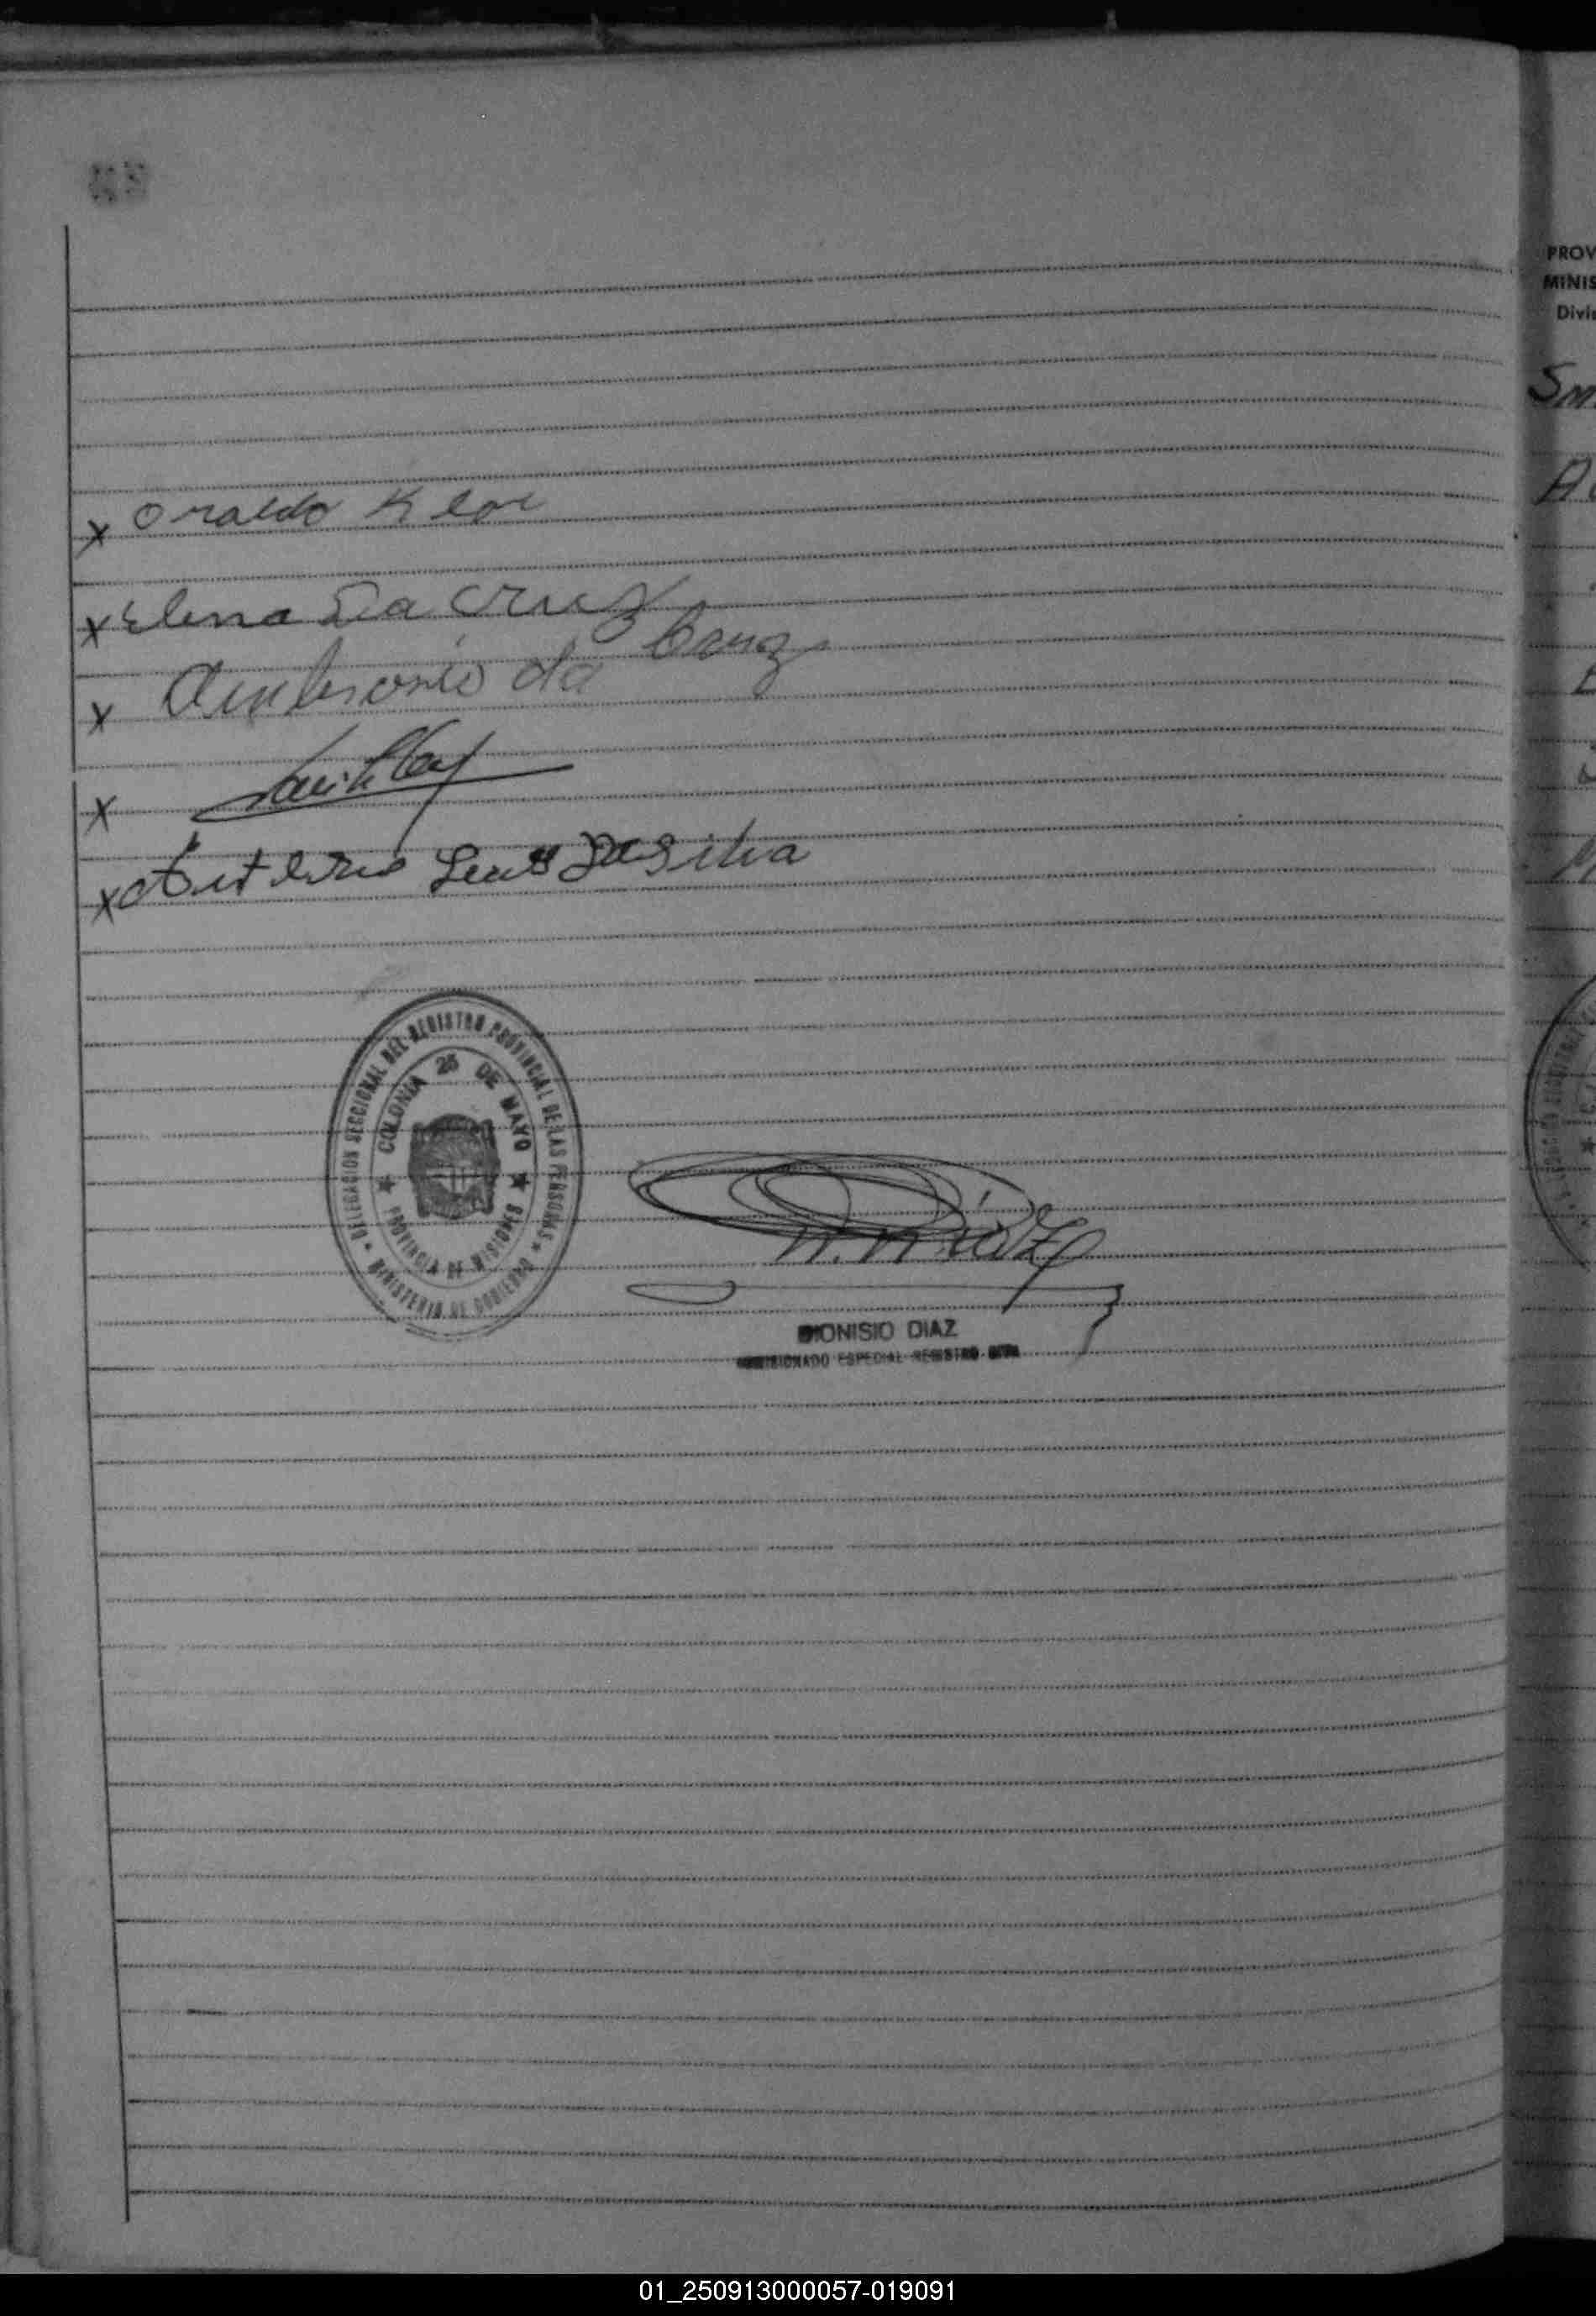 x Oraldo Klor
x Elena Da Cruz
x Ambrosio da Cruz
x
x da Silva
DELEGACION SECCIONAL DEL REGISTRO PROVINCIAL DE LAS PERSONAS
COLONIA 25 DE MAYO
PROVINCIA DE MISIONES
MINISTERIO DE GOBIERNO
D. Diaz
DIONISIO DIAZ
COMISIONADO ESPECIAL REGISTRO CIVIL
PROV
MINIS
Divis
01_250913000057-019091